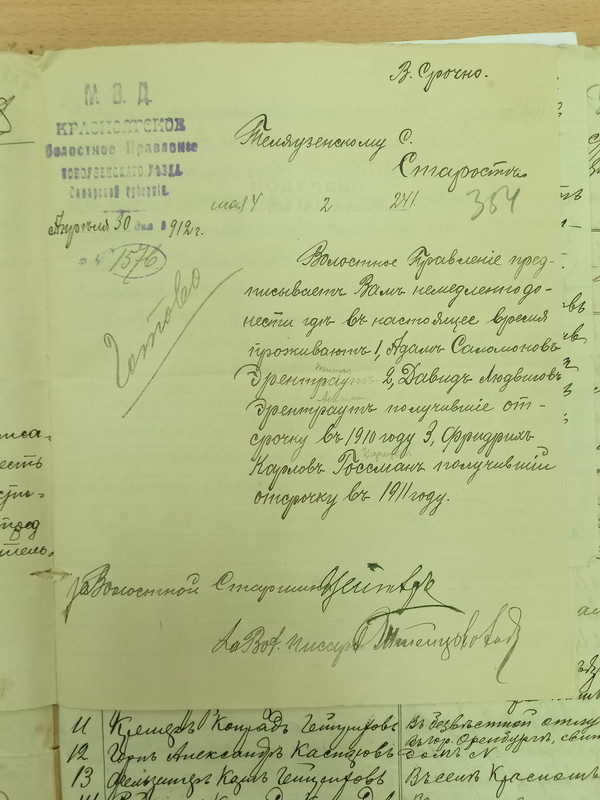 В. Срочно.
М. В. Д.
КРАСНОЯРСКОЕ
Волостное Правление
НОВОУЗЕНСКАГО УѢЗДА
Самарской губерніи.
Апрѣля 30 дня 1912 г.
№ 1576
Теляузенскому С.
Старостѣ
мая 4 2 241
354
Готово
Волостное Правленіе пред-
писываетъ Вамъ немедленно до-
нести гдѣ въ настоящее время
проживаютъ 1, Адамъ Саломоновъ
Эрентраутъ 2, Давидъ Людвиговъ
Эрентраутъ получившіе от-
срочку въ 1910 году 3, Фридрихъ
Карловъ Госсманъ получившій
отсрочку въ 1911 году.
за Волостной Старшина
За Вол. писаря
11 Кремеръ Конрадъ Генриховъ Въ безвѣстной отлу
Въ гор. Оренбургѣ, свит
12 Горнъ Александръ Каспаровъ домъ №
13 Фельцингеръ Карлъ Генриховъ Въ селѣ Краснояр